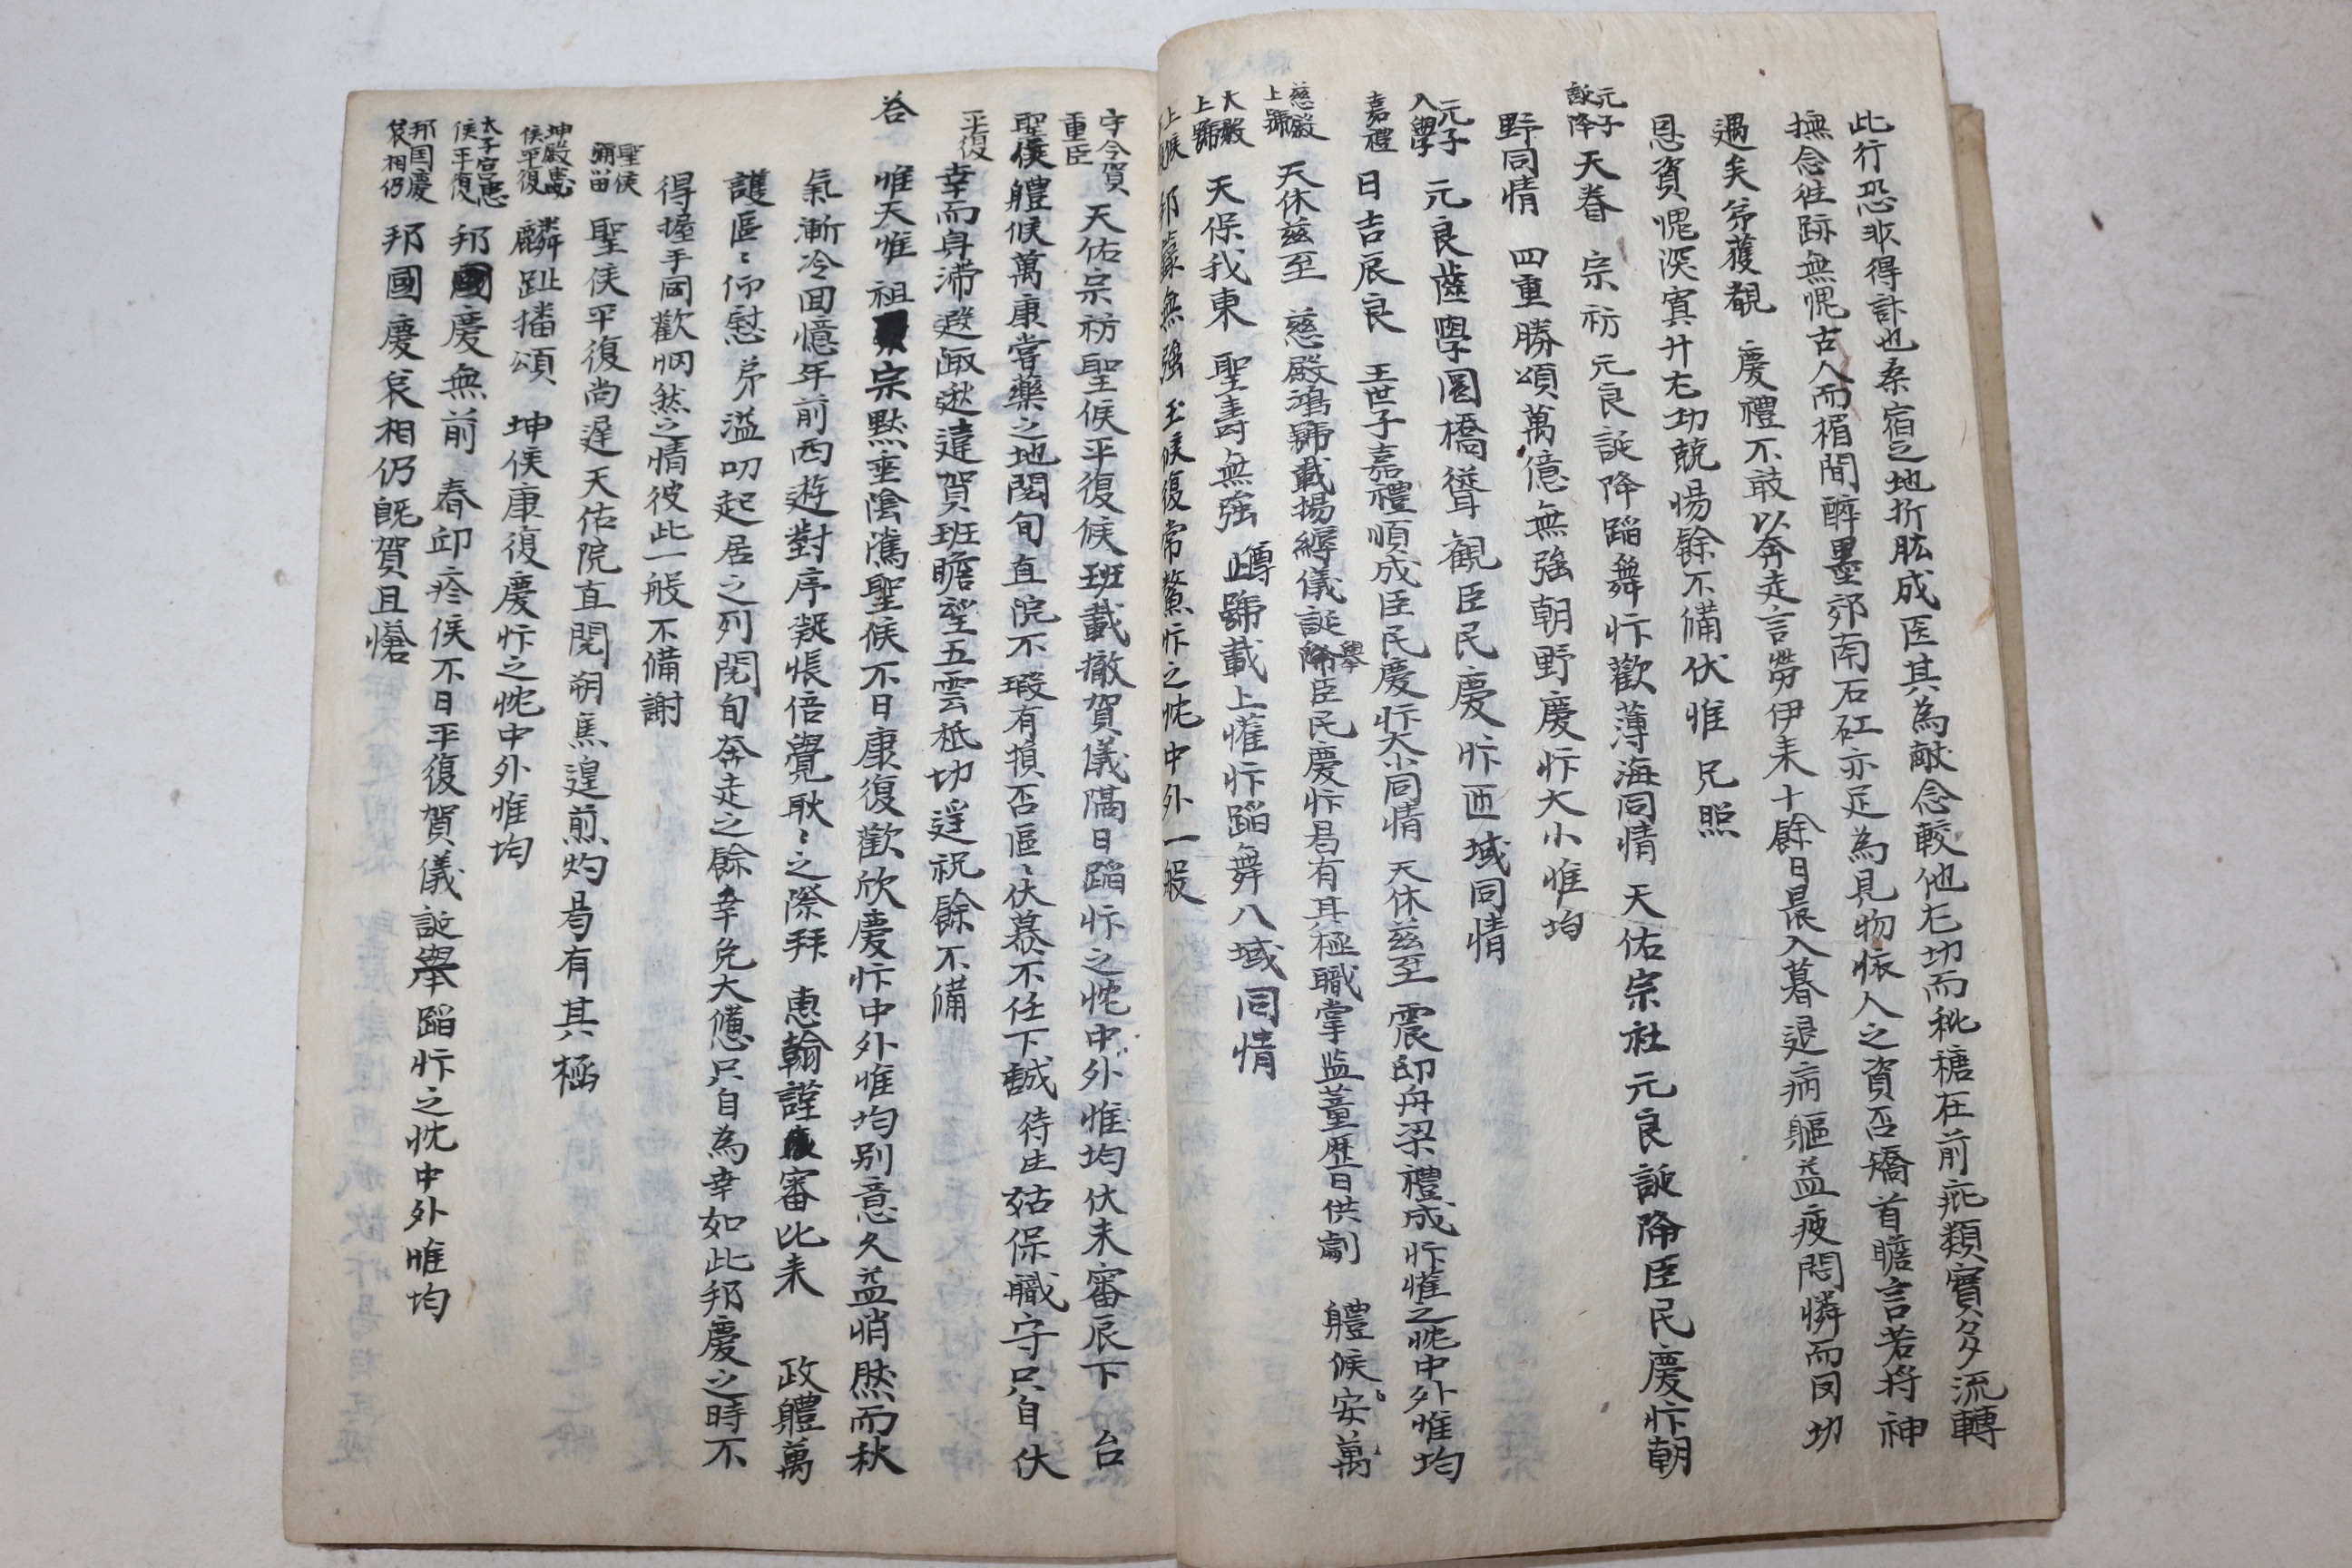 此行恐非得計也桑宿之地折肱成医其為獻念較他尤切而秕糠在前疵類實多流轉
撫念往跡無愧古人而楣間醉墨郊南石矼亦足為見物依人之資否矯首瞻言若将神
遇矣弟獲覩 慶禮不敢以奔走言勞伊来十餘日晨入暮退病軀益疲悶憐而罔切
恩資愧深寘升尤切兢惕餘不備伏惟 兄照
元子誕降 天眷 宗祊 元良誕降蹈舞忭歡薄海同情 天佑宗社 元良誕降臣民慶忭朝
野同情 四重勝頌萬億無強朝野慶忭大小惟均
元子入學 元良齒學圜橋聳觀臣民慶忭匝域同情
嘉禮 日吉辰良 王世子嘉禮順成臣民慶忭大小同情 天休茲至 震邸舟梁禮成忭懽之忱中外惟均
慈殿上號 天休茲至 慈殿鴻號載揚縟儀誕降擧臣民慶忭曷有其極職掌監董歷日供劇 軆候安萬
大殿上號 天保我東 聖壽無強 尊號載上懽忭蹈舞八域同情
上候 邦籙無強玉候復常鰲忭之忱中外一般
守令賀重臣 天佑宗祊聖候平復候班載撤賀儀隔日蹈忭之忱中外惟均伏未審辰下 台
聖候平復 軆候萬康嘗藥之地閱旬直院不瑕有損否區〻伏慕不任下誠 侍生 姑保職守只自伏
幸而身滯遐陬逖違賀班瞻望五雲祗切遥祝餘不備
答 惟天惟 祖宗默垂陰騭聖候不日康復歡欣慶忭中外惟均別意久益悄然而秋
氣漸冷面憶年前西遊對序凝悵倍覺耿〻之際拜 惠翰謹審比来 政軆萬
護區〻仰慰 弟溢叨起居之列閱旬奔走之餘幸免大憊只自為幸如此邦慶之時不
得握手同歡惘然之情彼此一般不備謝
聖候彌留 聖候平復尚遅天佑院直閱朔焦遑煎灼曷有其極
坤殿患候平復 麟趾播頌 坤候康復慶忭之忱中外惟均
太子宮患候平復 邦國慶無前 春邸疹候不日平復賀儀誕擧蹈忭之忱中外惟均
邦国慶哀相仍 邦國慶哀相仍既賀且愴